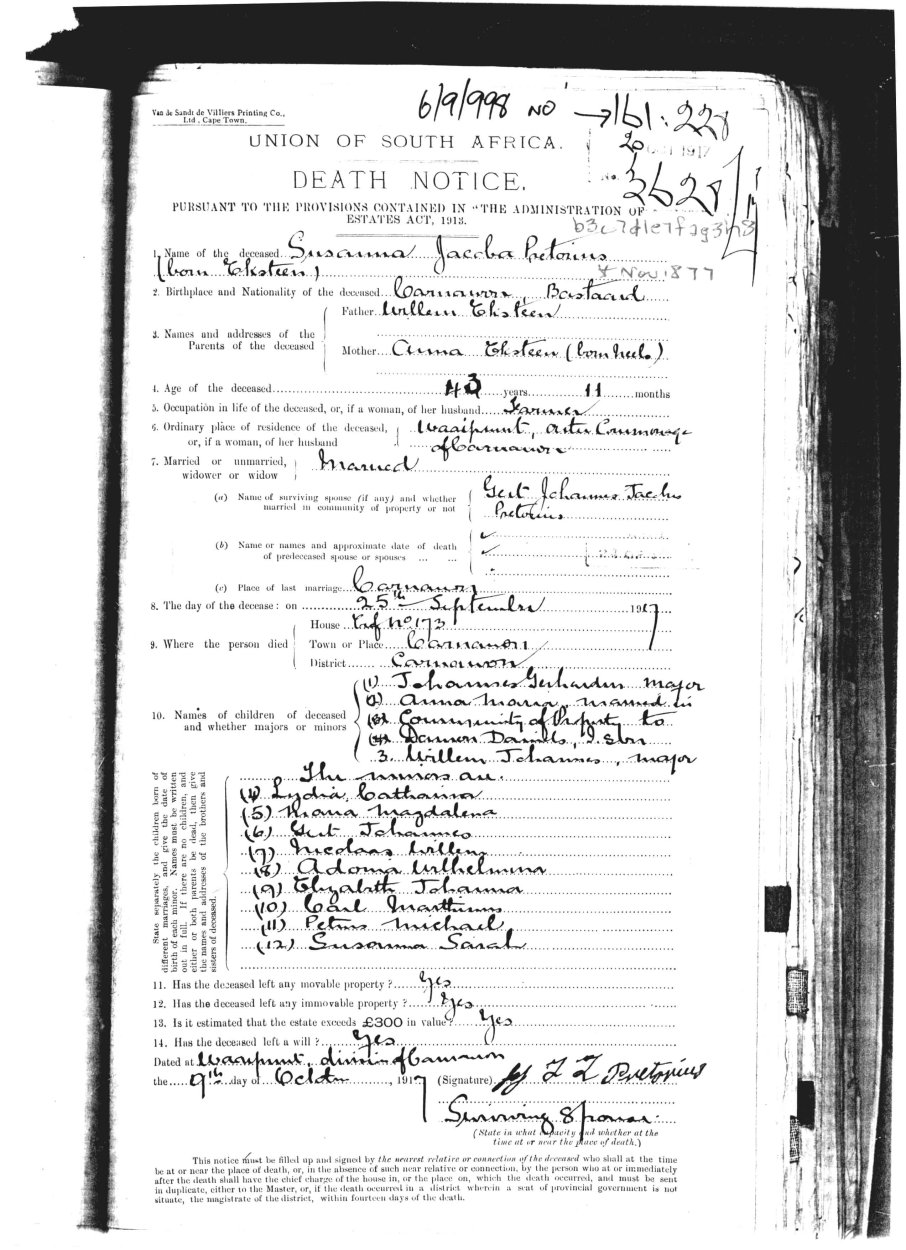 Van de Sandt de Villiers Printing Co.,
Ltd, Cape Town.
6/9/998 NO → 161:228
UNION OF SOUTH AFRICA.
20 1917
DEATH NOTICE.
No. 3628/17
PURSUANT TO THE PROVISIONS CONTAINED IN "THE ADMINISTRATION OF
ESTATES ACT, 1913.
1. Name of the deceased Susanna Jacoba Pretorius
(born Eksteen)
Nov 1877
2. Birthplace and Nationality of the deceased Carnarvon, Bastaard
3. Names and addresses of the Parents of the deceased
Father Willem Eksteen
Mother Anna Eksteen (born Neels)
4. Age of the deceased 43 years 11 months
5. Occupation in life of the deceased, or, if a woman, of her husband Farmer
6. Ordinary place of residence of the deceased, Waaipunt, Commonage
or, if a woman, of her husband of Carnarvon
7. Married or unmarried, Married
widower or widow
(a) Name of surviving spouse (if any) and whether Gert Johannes Jacobus
married in community of property or not Pretorius
(b) Name or names and approximate date of death
of predeceased spouse or spouses ... ...
(c) Place of last marriage Carnarvon
8. The day of the decease: on 25th September 1917
9. Where the person died
House Erf No 173
Town or Place Carnarvon
District Carnarvon
10. Names of children of deceased
and whether majors or minors
(1) Johannes Gerhardus major
(2) Anna Maria, married in
Community of Property to
Daniels,
3. Willem Johannes, major
The minors are.
(4) Lydia Catharina
(5) Magdalena
(6) Gert Johannes
(7) Nicolaas Willem
(8) Wilhelmina
(9) Elizabeth Johanna
(10) Carl Marthinus
(11) Petrus Michael
(12) Susanna Sarah
State separately the children born of
different marriages, and give the date of
birth of each minor. Names must be written
out in full. If there are no children, and
either or both parents be dead, then give
the names and addresses of the brothers and
sisters of deceased.
11. Has the deceased left any movable property? Yes
12. Has the deceased left any immovable property? Yes
13. Is it estimated that the estate exceeds £300 in value? Yes
14. Has the deceased left a will? Yes
Dated at Waaipunt, division of Carnarvon
the 9th day of October, 1917 (Signature) Pretorius
Surviving Spouse.
(State in what capacity and whether at the
time at or near the place of death.)
This notice must be filled up and signed by the nearest relative or connection of the deceased who shall at the time
be at or near the place of death, or, in the absence of such near relative or connection, by the person who at or immediately
after the death shall have the chief charge of the house in, or the place on, which the death occurred, and must be sent
in duplicate, either to the Master, or, if the death occurred in a district wherein a seat of provincial government is not
situate, the magistrate of the district, within fourteen days of the death.